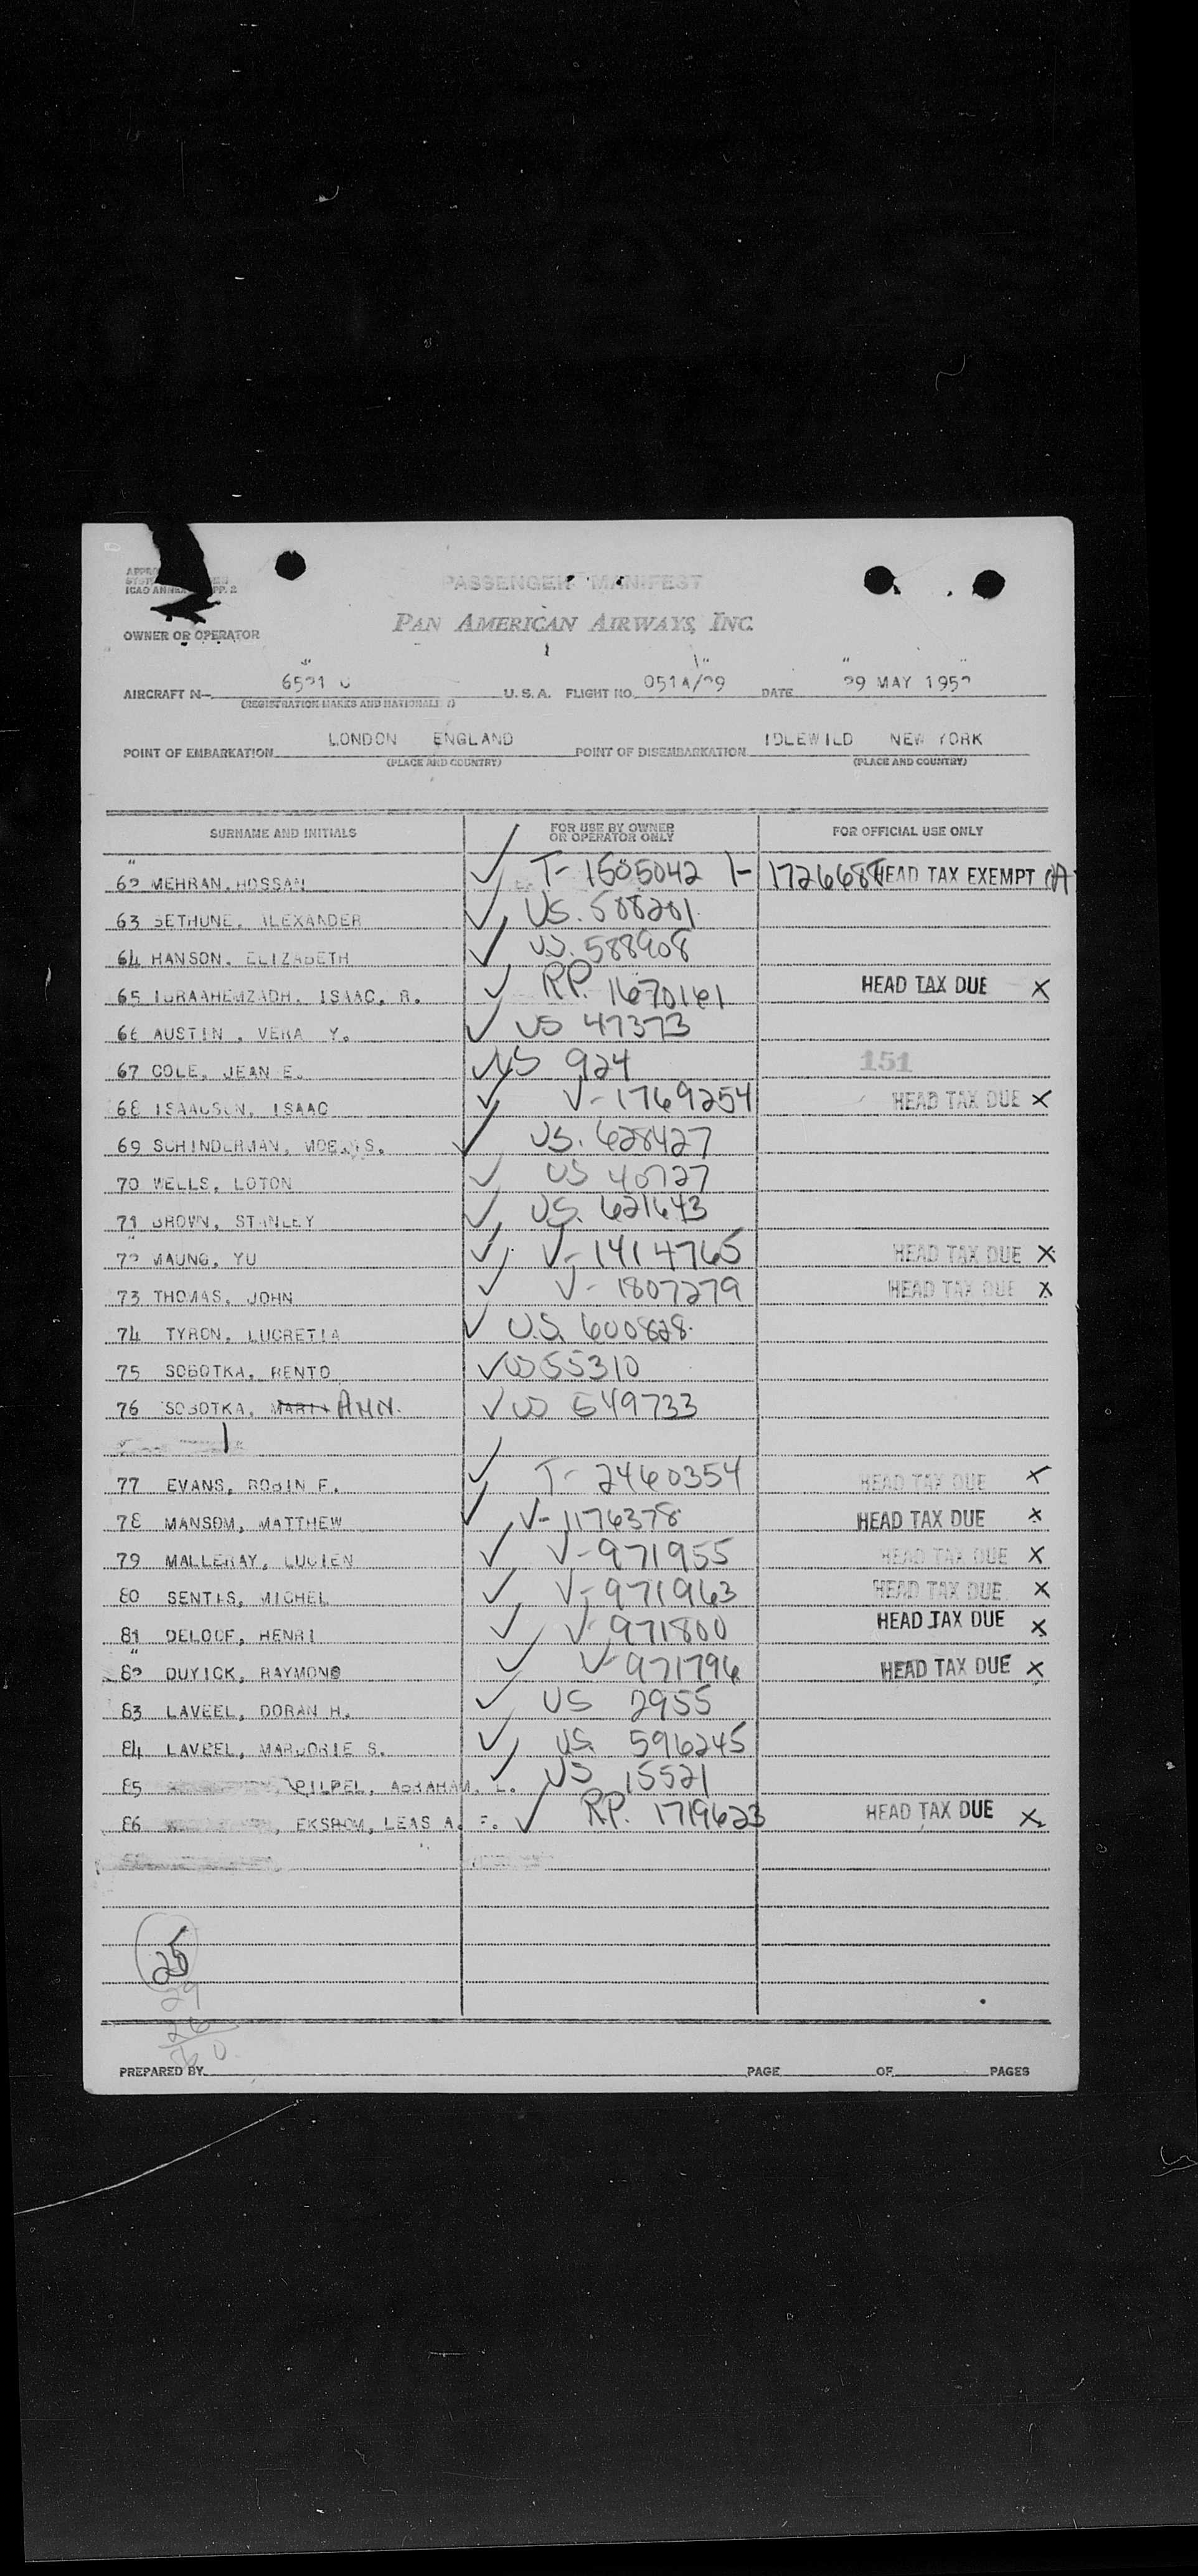 PASSENGER MANIFEST
ICAO ANNEX PP. 2
PAN AMERICAN AIRWAYS, INC.
OWNER OR OPERATOR
AIRCRAFT N- U.S.A. FLIGHT NO. 051A/29 DATE 29 MAY 1952
(REGISTRATION MARKS AND NATIONALITY)
POINT OF EMBARKATION LONDON ENGLAND POINT OF DISEMBARKATION IDLEWILD NEW YORK
(PLACE AND COUNTRY) (PLACE AND COUNTRY)
SURNAME AND INITIALS FOR USE BY OWNER OR OPERATOR ONLY FOR OFFICIAL USE ONLY
62 MEHRAN, HOSSAN ✓ T- 1505042 HEAD TAX EXEMPT
63 BETHUNE, ALEXANDER ✓ US. 588281
64 HANSON, ELIZABETH ✓ US. 588908
65 ISAAC, R. ✓ RP. 1670161 HEAD TAX DUE X
66 AUSTIN, VERA Y. ✓ US 47373
67 COLE, JEAN E. ✓ US 924 151
68 ISAACSON, ISAAC ✓ V-1769254 HEAD TAX DUE X
69 SCHINDERMAN, S. ✓ US. 628427
70 WELLS, LOTON ✓ US 40727
71 BROWN, STANLEY ✓ US. 621643
72 MAUNG, YU ✓ V-1414765 HEAD TAX DUE X
73 THOMAS, JOHN ✓ V- 1807279 HEAD TAX DUE X
74 TYRON, LUCRETIA ✓ U.S. 600828
75 SOBOTKA, RENTO ✓ US 55310
76 SOBOTKA, ANN. ✓ US 649733
77 EVANS, ROBIN F. ✓ T- 2460354 HEAD TAX DUE X
78 MANSOM, MATTHEW ✓ V- 1176378 HEAD TAX DUE X
79 MALLERAY, LUCIEN ✓ V-971955 HEAD TAX DUE X
80 SENTIS, MICHEL ✓ V-971963 HEAD TAX DUE X
81 DELOOF, HENRI ✓ V-971800 HEAD TAX DUE X
82 DUYICK, RAYMOND ✓ V-971796 HEAD TAX DUE X
83 LAVEEL, DORAN H. ✓ US 2955
84 LAVEEL, MARJORIE S. ✓ US. 596245
85 PILPEL, ABRAHAM, L. ✓ US 15521
86 EKSROM, LEAS A. F. ✓ RP. 1719623 HEAD TAX DUE X
25
29
26
PREPARED BY PAGE OF PAGES